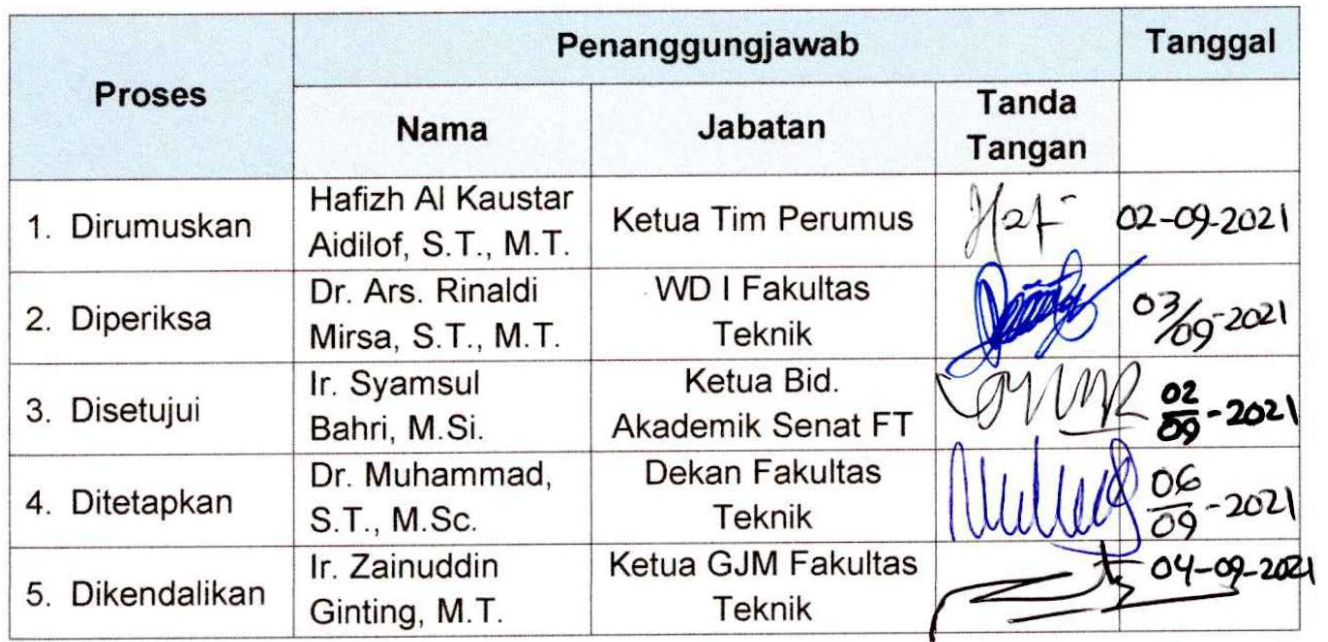 Proses
Penanggungjawab
Tanggal
Nama
Jabatan
Tanda
Tangan
1. Dirumuskan
Hafizh Al Kaustar
Aidilof, S.T., M.T.
Ketua Tim Perumus
Haf
02-09-2021
2. Diperiksa
Dr. Ars. Rinaldi
Mirsa, S.T., M.T.
WD I Fakultas
Teknik
03/09-2021
3. Disetujui
Ir. Syamsul
Bahri, M.Si.
Ketua Bid.
Akademik Senat FT
02/09-2021
4. Ditetapkan
Dr. Muhammad,
S.T., M.Sc.
Dekan Fakultas
Teknik
06/09-2021
5. Dikendalikan
Ir. Zainuddin
Ginting, M.T.
Ketua GJM Fakultas
Teknik
04-09-2021